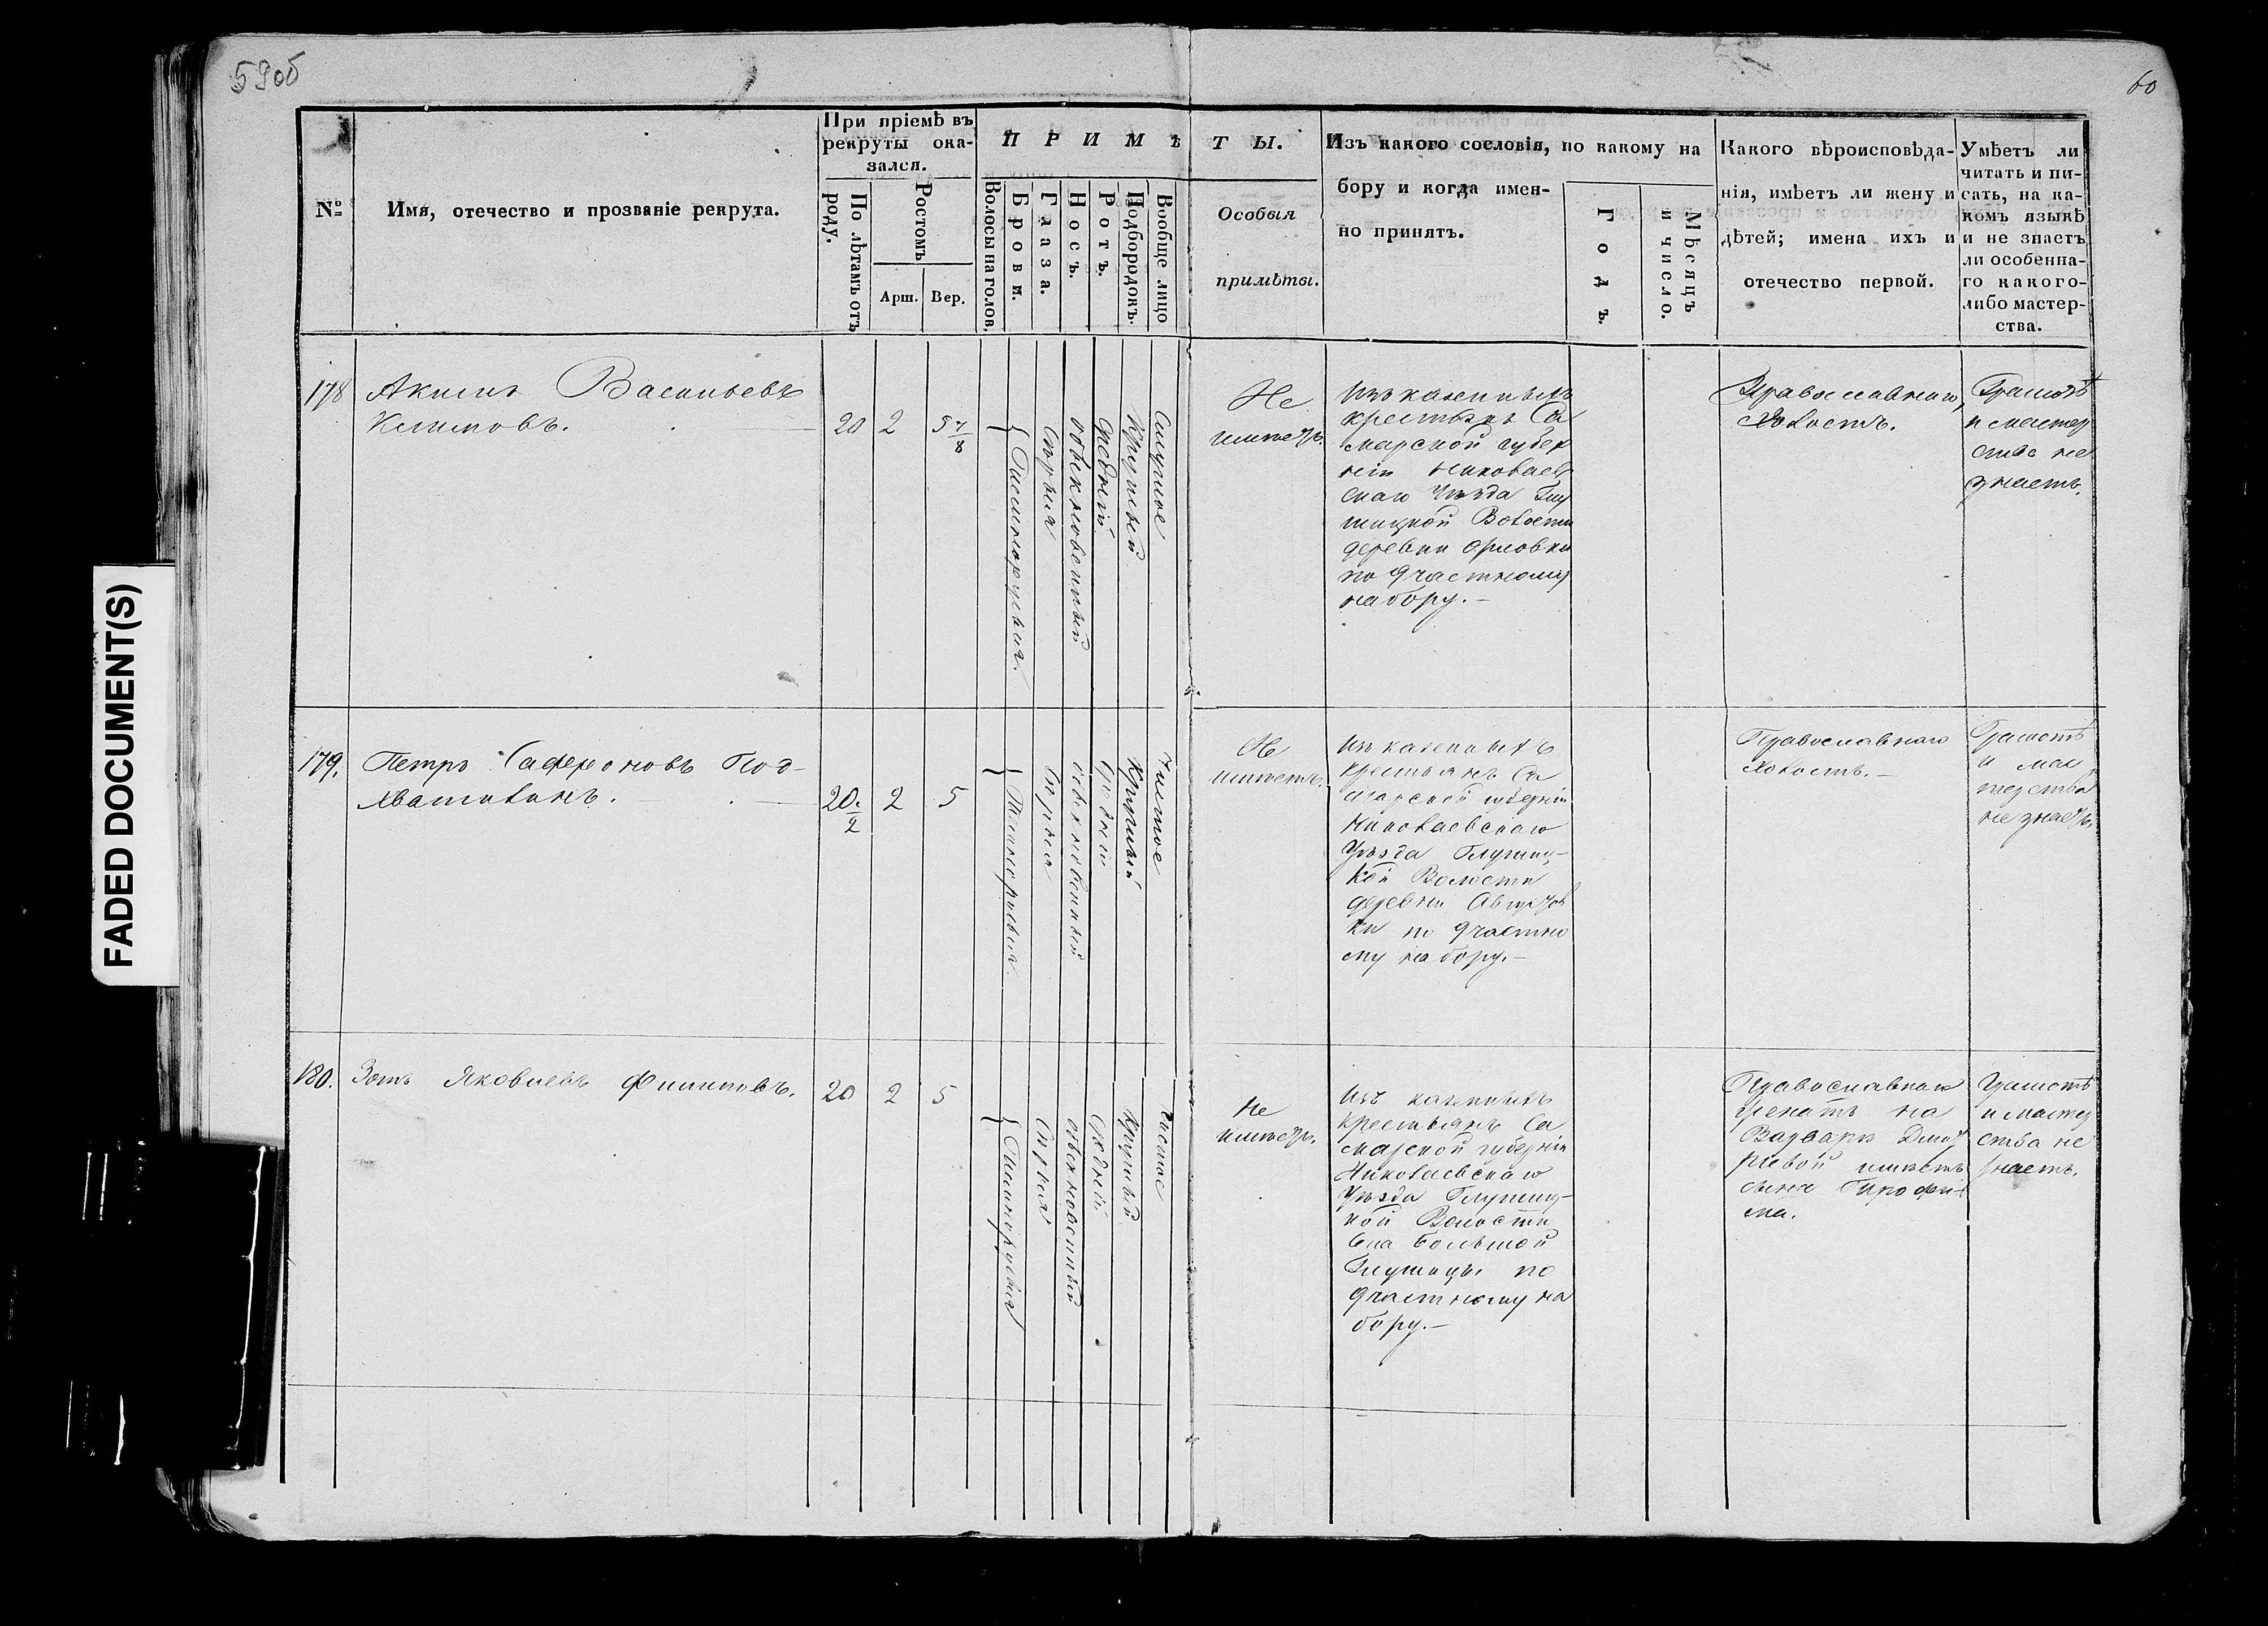 59об
60
FADED DOCUMENT(S)
№
Имя, отечество и прозваніе рекрута.
При пріемѣ въ
рекруты ока-
зался.
По лѣтамъ отъ
роду.
Ростомъ
Арш.
Вер.
ПРИМѢТЫ.
Волосы на головѣ,
Брови.
Глаза.
Носъ.
Ротъ.
Подбородокъ.
Вообще лицо
Особыя
примѣты.
Изъ какого сословія, по какому на
бору и когда имен-
но принятъ.
Годъ.
Мѣсяцъ
и число.
Какого вѣроисповѣда-
нія, имѣетъ ли жену и
дѣтей; имена ихъ и
отечество первой.
Умѣетъ ли
читать и пи-
сать, на ка-
комъ языкѣ
и не знаетъ
ли особенна-
го какого-
либо мастер-
ства.
178
Акимъ Васильевъ
Климовъ.
20
2
5 7/8
Темнорусыя.
Сѣрыя
обыкновенный
средній
Круглый
Смуглое
Не
имѣетъ.
Изъ казенныхъ
крестьянъ Са
марской губер
ніи Николаев
скаго Уѣзда Глу
шицкой Волости
деревни Орловки
по 9 частному
набору.—
Православнаго,
Холостъ.
Грамотѣ
и мастер
ства не
знаетъ.
179.
Петръ Сафроновъ Под-
хватилинъ.
20 1/2
2
5
Темнорусыя.
Сѣрыя
обыкновенный
средній
Круглый
Чистое
Не
имѣетъ.
Изъ казенныхъ
крестьянъ Са
марской губерніи
Николаевскаго
Уѣзда Глушиц-
кой Волости
деревни Августов
ки по 9 частно
му набору.—
Православнаго
Холостъ.—
Грамотѣ
и мас
терства
не знаетъ.
180.
Зотъ Яковлевъ Филиповъ.
20
2
5
Темнорусыя
Сѣрыя
обыкновенный
средній
Круглый
Чистое
Не
имѣетъ.
Изъ казенныхъ
крестьянъ Са
марской губерніи
Николаевскаго
Уѣзда Глушиц-
кой Волости
Села Большой
Глушицы по
9 частному на
бору.—
Православнаго
женатъ на
Варваре Дмит
риевой имѣетъ
сына Трофи-
ма.
Грамотѣ
и мастер
ства не
знаетъ.